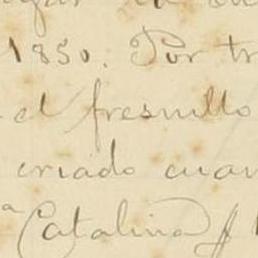 1850. Por tr
el fresnillo
criado cuan
Catalina